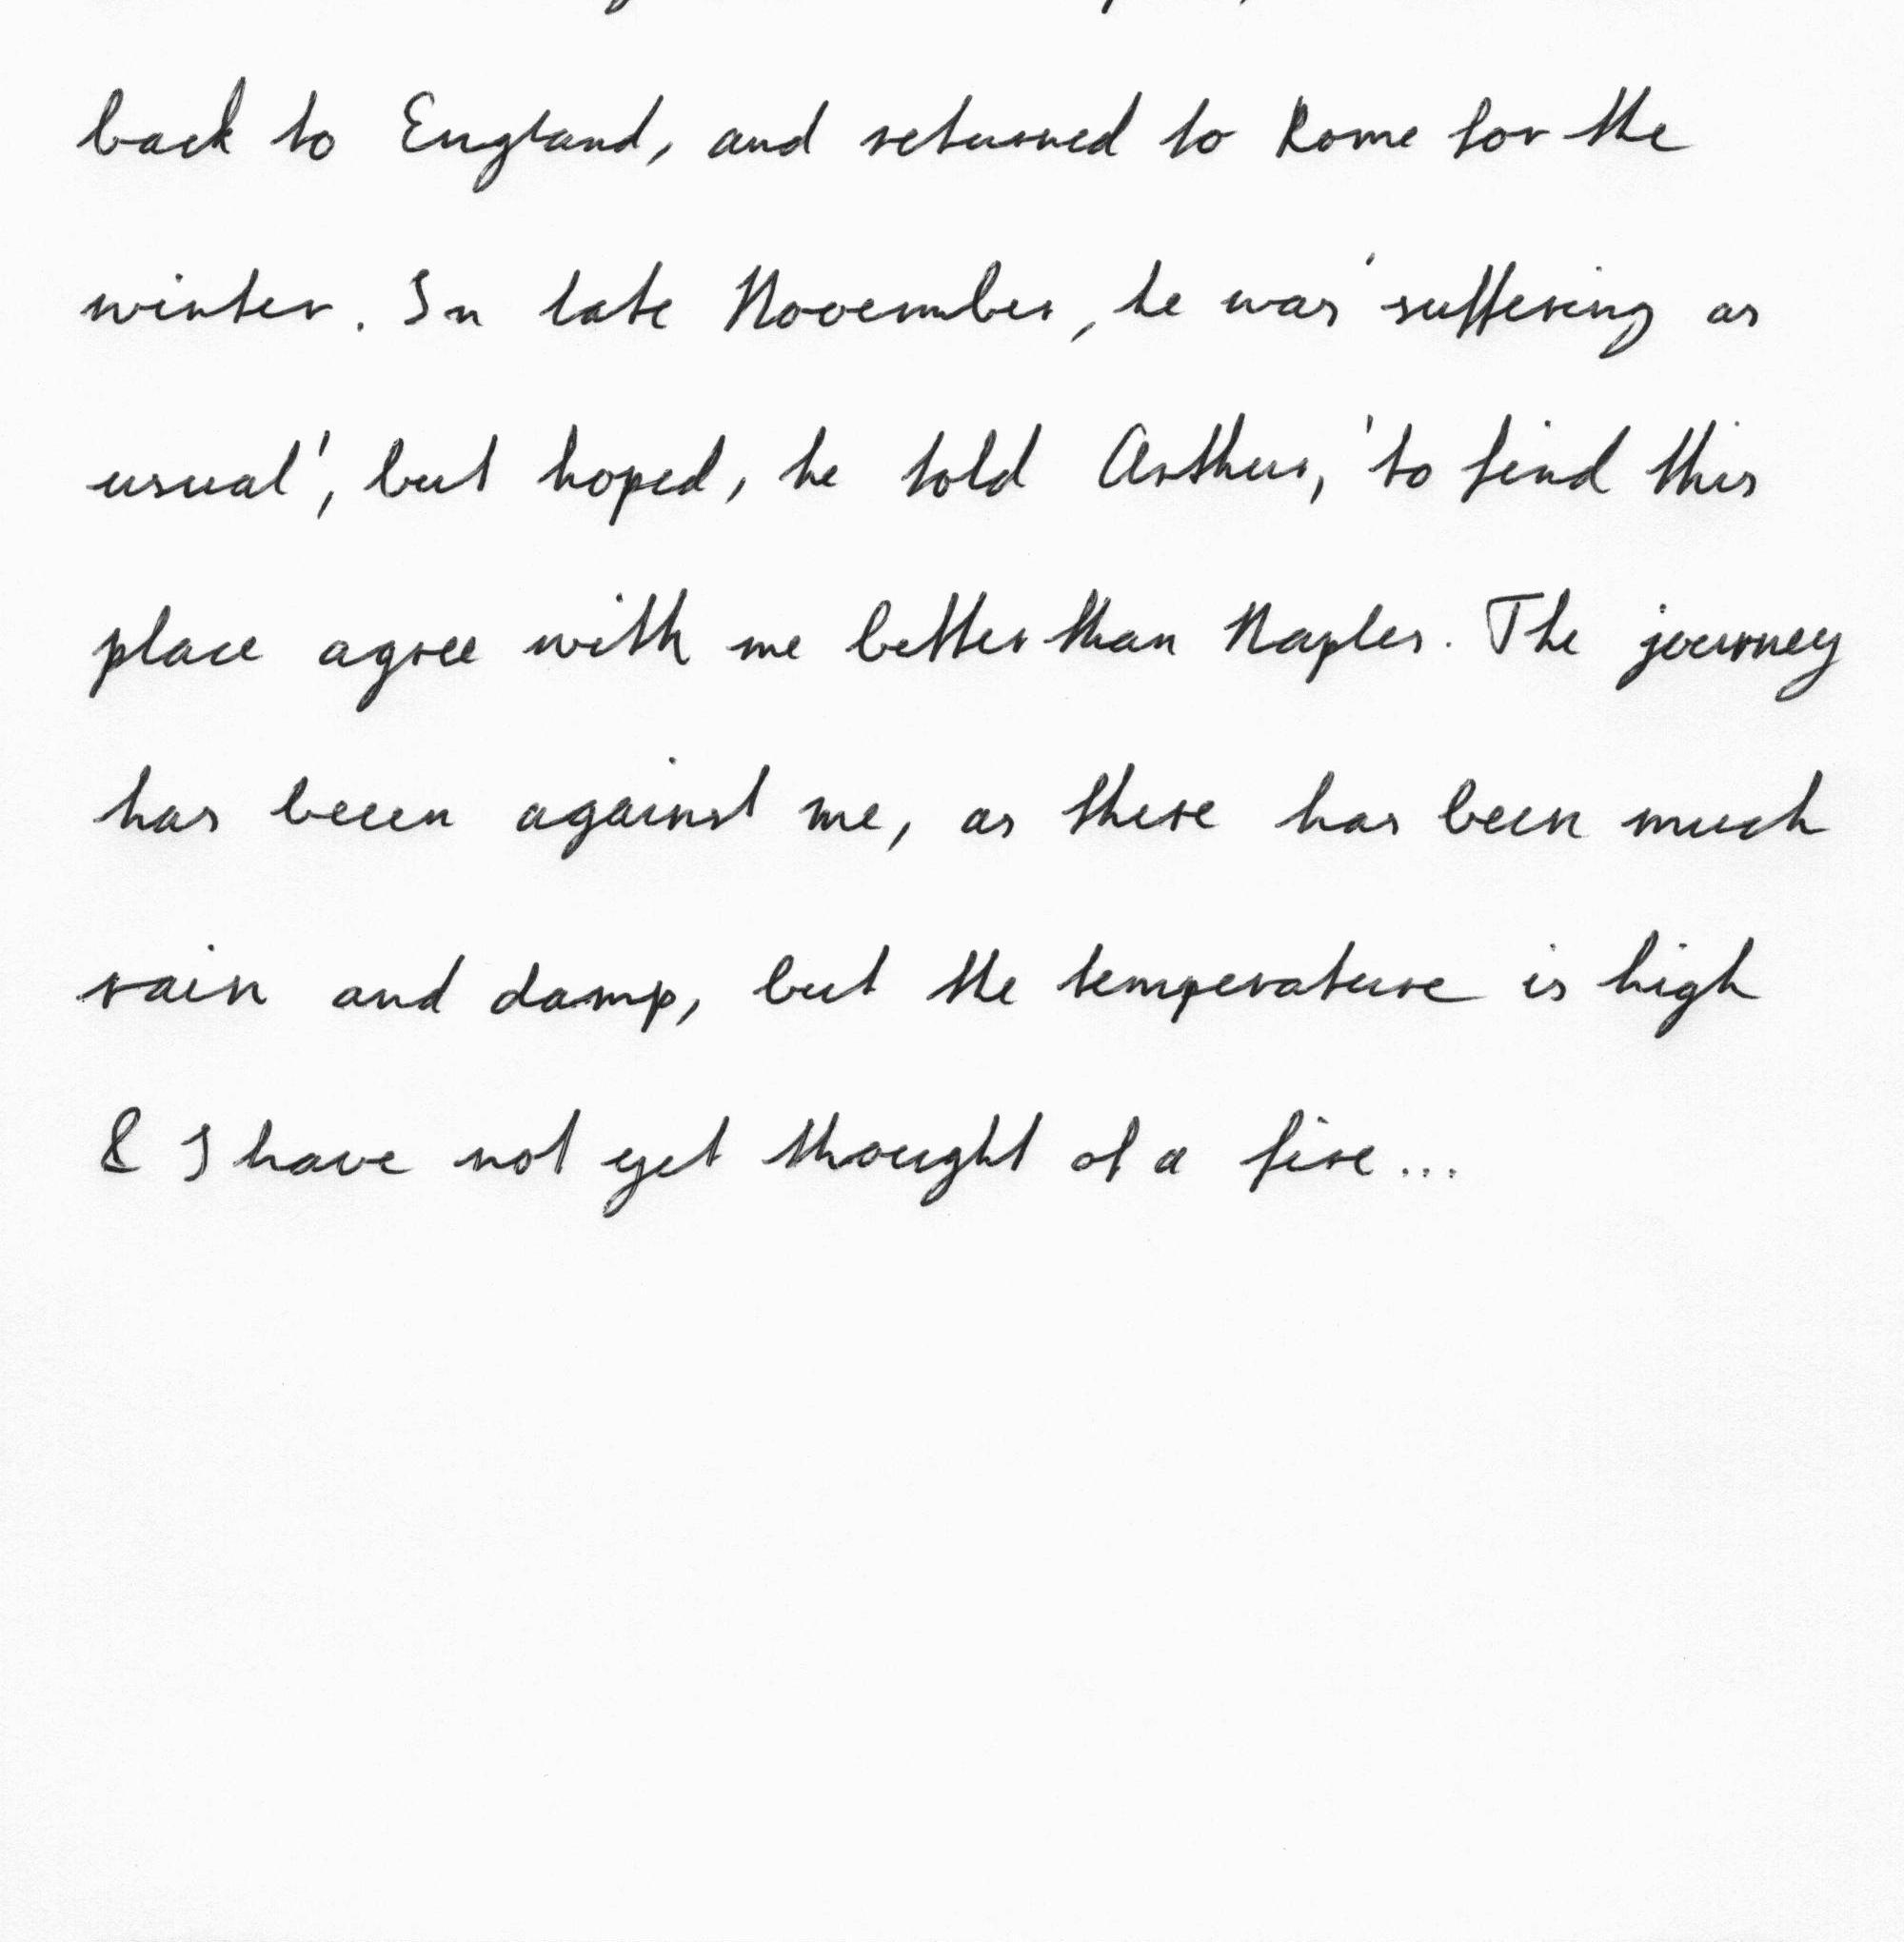 back to England, and returned to Rome for the
winter. In late November, he was 'suffering as
usual', but hoped, he told Arthur, 'to find this
place agree with me better than Naples. The journey
has been against me, as there has been much
rain and damp, but the temperature is high
& I have not yet thought of a fire...